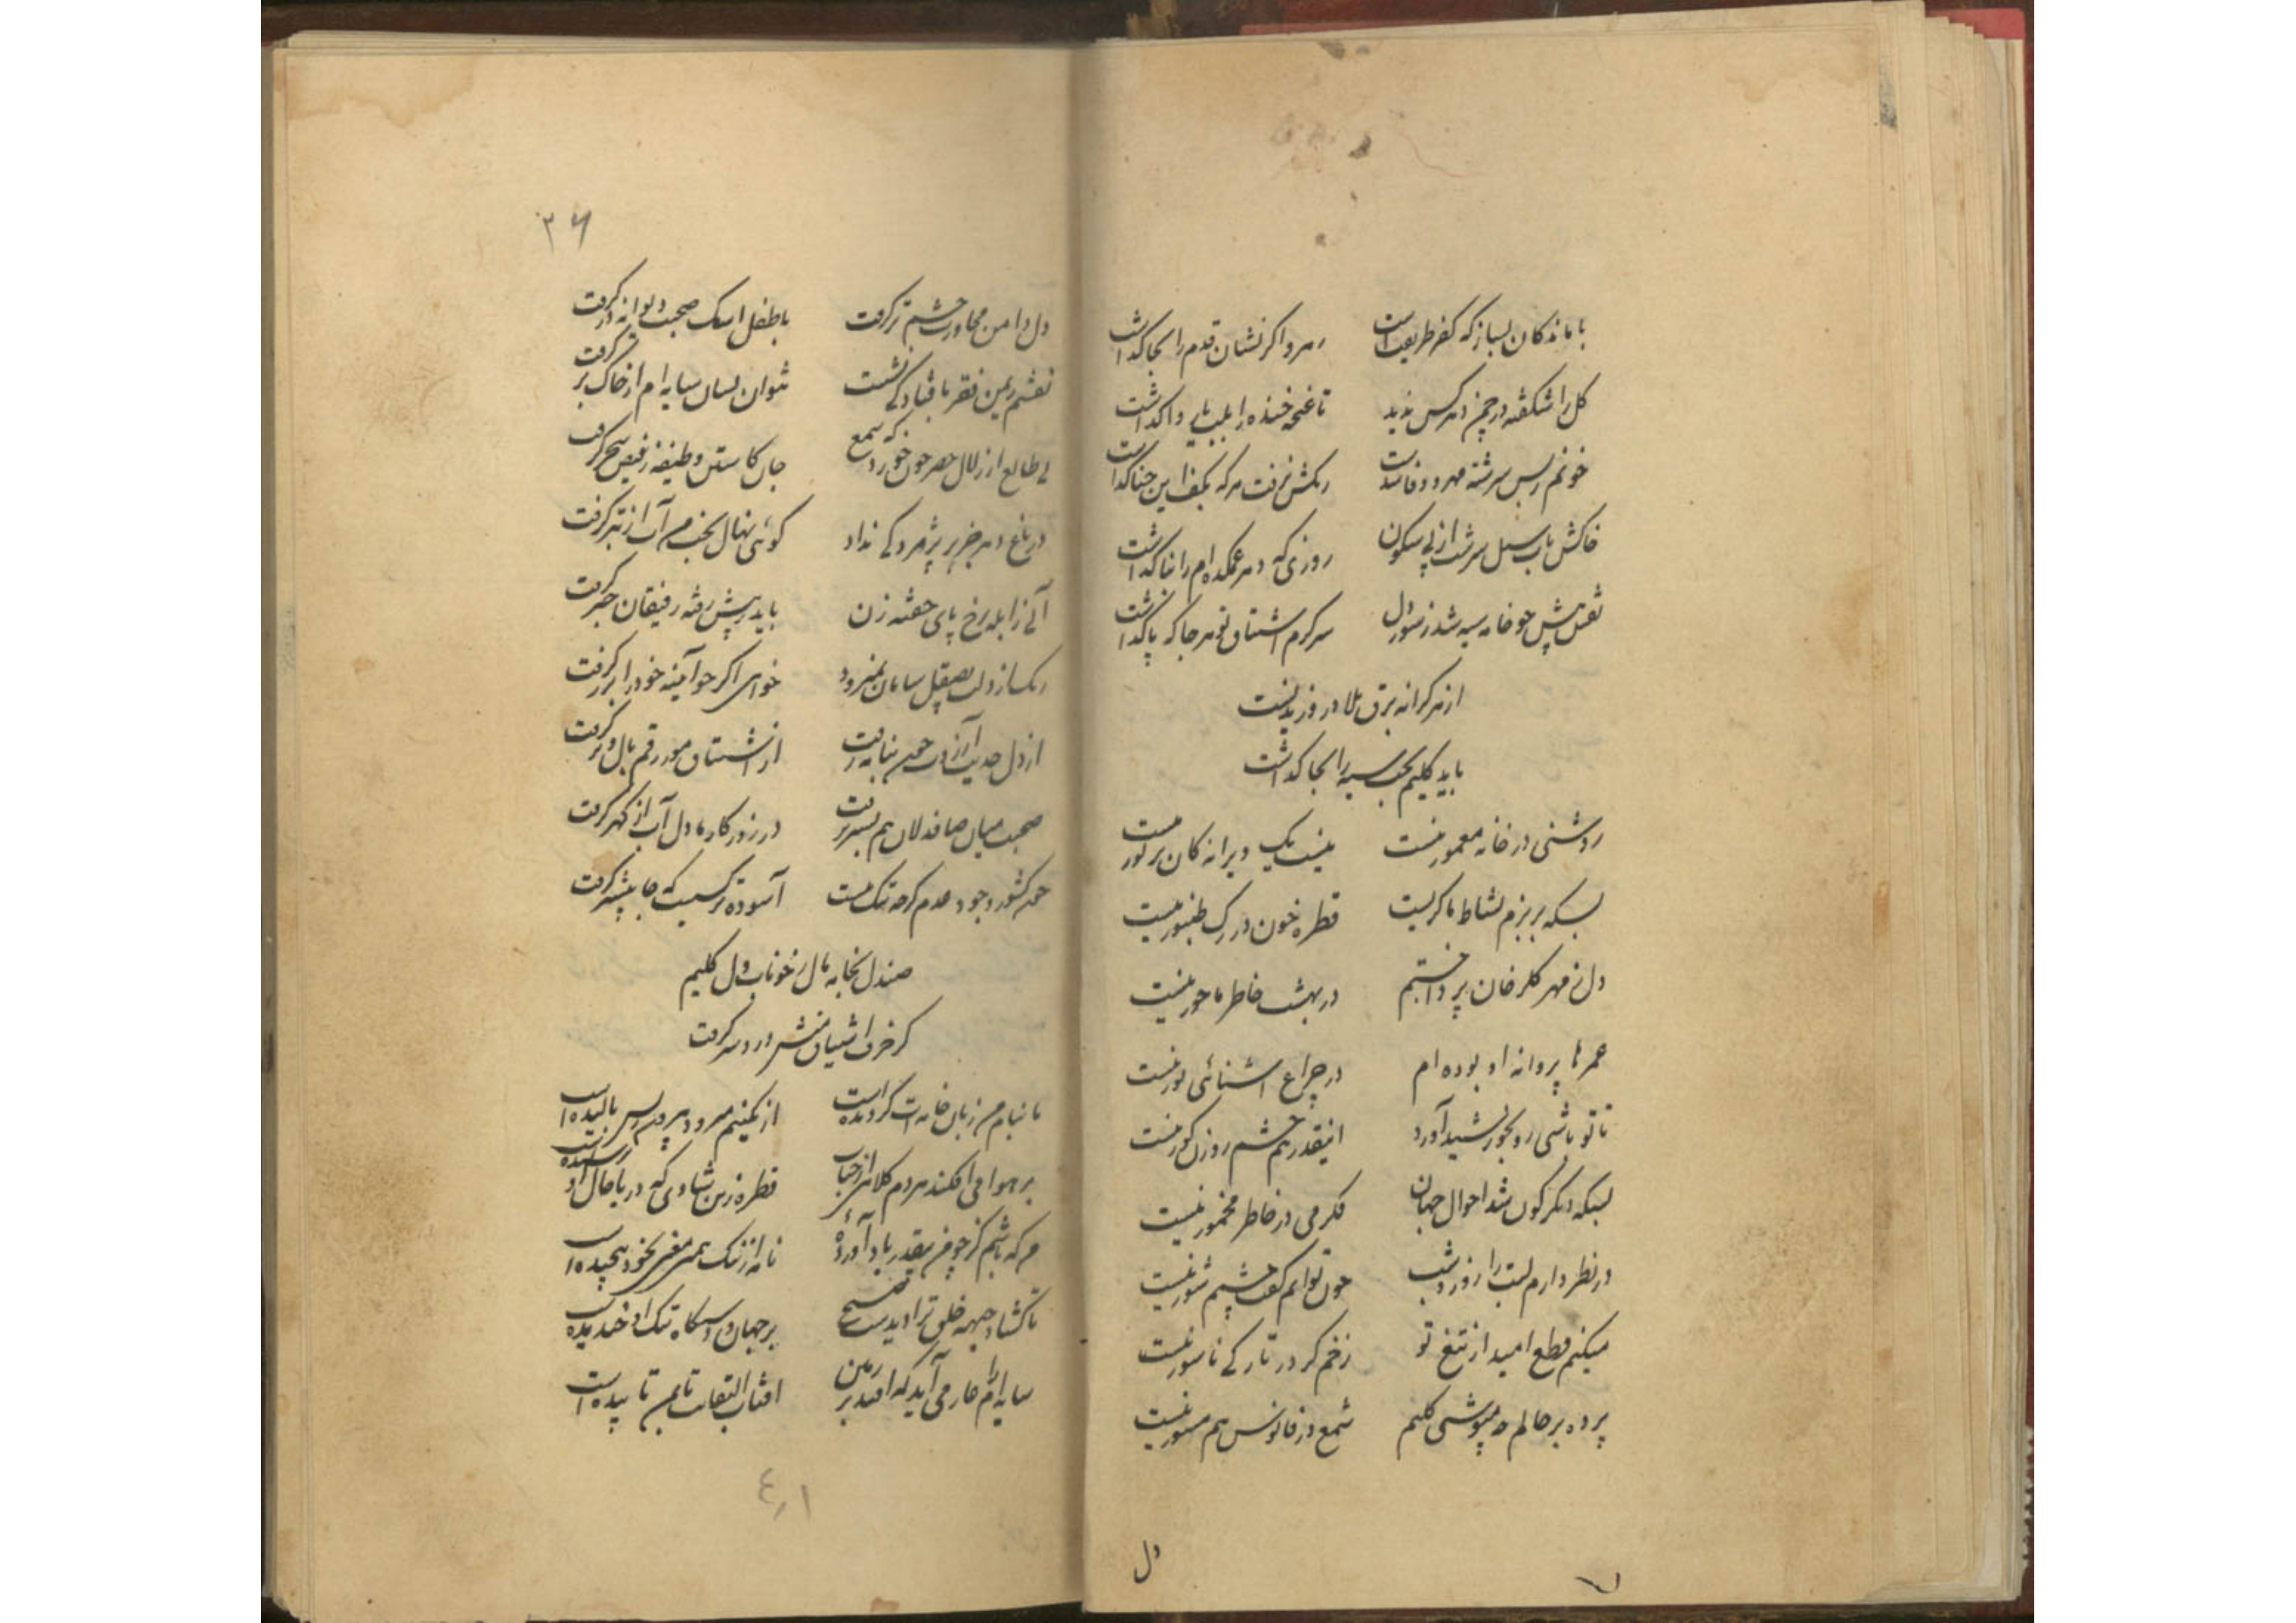 با ماندگان بساز که کفر طریقت است رهرو اگر نشان قدم را بجا گذاشت
گل را شکفته در چمن دهر کس ندید تا غنچه خنده را بلب یار واگذاشت
خونم ز بس سرشته مهر و وفا شدست رنگش نرفت هر که بکف این حنا گذاشت
خاکش بآب سیل سرشت از پی سکون روزی که دهر غمکده‌ام را بنا گذاشت
نقش پیش چو خامه سیه شد ز سوز دل سرگرم اشتیاق تو هر جا که پا گذاشت
از هر کرانه برق بلا در وزیدنست
باید کلیم بخت سیه را بجا گذاشت
روشنی در خانه معمور نیست نیست یک ویرانه کان پر نور نیست
بسکه بر بزم نشاط ما گریست قطره خون در رگ طنبور نیست
دل ز مهر گلرخان پرداختیم در بهشت خاطر ما حور نیست
عمرها پروانه او بوده‌ام در چراغ آشنائی نور نیست
تا تو باشی رو بخورشید آورد اینقدر هم چشم روزن کور نیست
بسکه دیگرگون شد احوال جهان فکر می در خاطر مخمور نیست
در نظر دارم لبت را روز و شب چون توانم گفت چشمم شور نیست
میکنم قطع امید از تیغ تو زخم گر در تارکی ناسور نیست
پرده بر حالم چه میپوشی کلیم شمع در فانوس هم مستور نیست
دل
۳۶
دل دامن مجاورت چشم تر گرفت با طفل اشک صحبت دیوانه در گرفت
نقشم زیمن فقر بافتادگی نشست نتوان بسان سایه‌ام از خاک بر گرفت
بی طالع از زلال خضر خون خورد که شمع جان کاستن وظیفه ز فیض سحر گرفت
در باغ دهر جز بر پژمردگی نداد گوئی نهال بختم آب از تبر گرفت
آبی ز آبله برخ پای خفته زن باید ز پیش رفته رفیقان خبر گرفت
رنگ از دلت بصیقل سامان نمیرود خواهی اگر چو آینه خود را بزر گرفت
از دل حدیث آرزوت چون بنامه رفت از اشتیاق مور رقم بال و پر گرفت
صحبت میان صافدلان هم بسر نرفت در روزگار ما دل آب از گهر گرفت
چون کشور وجود عدم گرچه تنگ نیست آسوده‌تر کسیست که جا پیشتر گرفت
صندل بجا بمال ز خوناب دل کلیم
کز حرف اشتیاق منش درد سر گرفت
تا بنامم زبان خامه‌ات گردیده است از نگینم سر و در پیرهن بالیده است
بر هوا می‌افکند هر دم کلاه از حباب قطره زین شادی که دریا حال او پرسیده است
تا گشاد جبهه خلق ترا دیدست صبح بر جهان و دستگاه تنگ او خندیده است
سایه‌ام را عار می‌آید که افتد بر زمین آفتاب التفاتت تا بمن تابیده است
۴۰۱